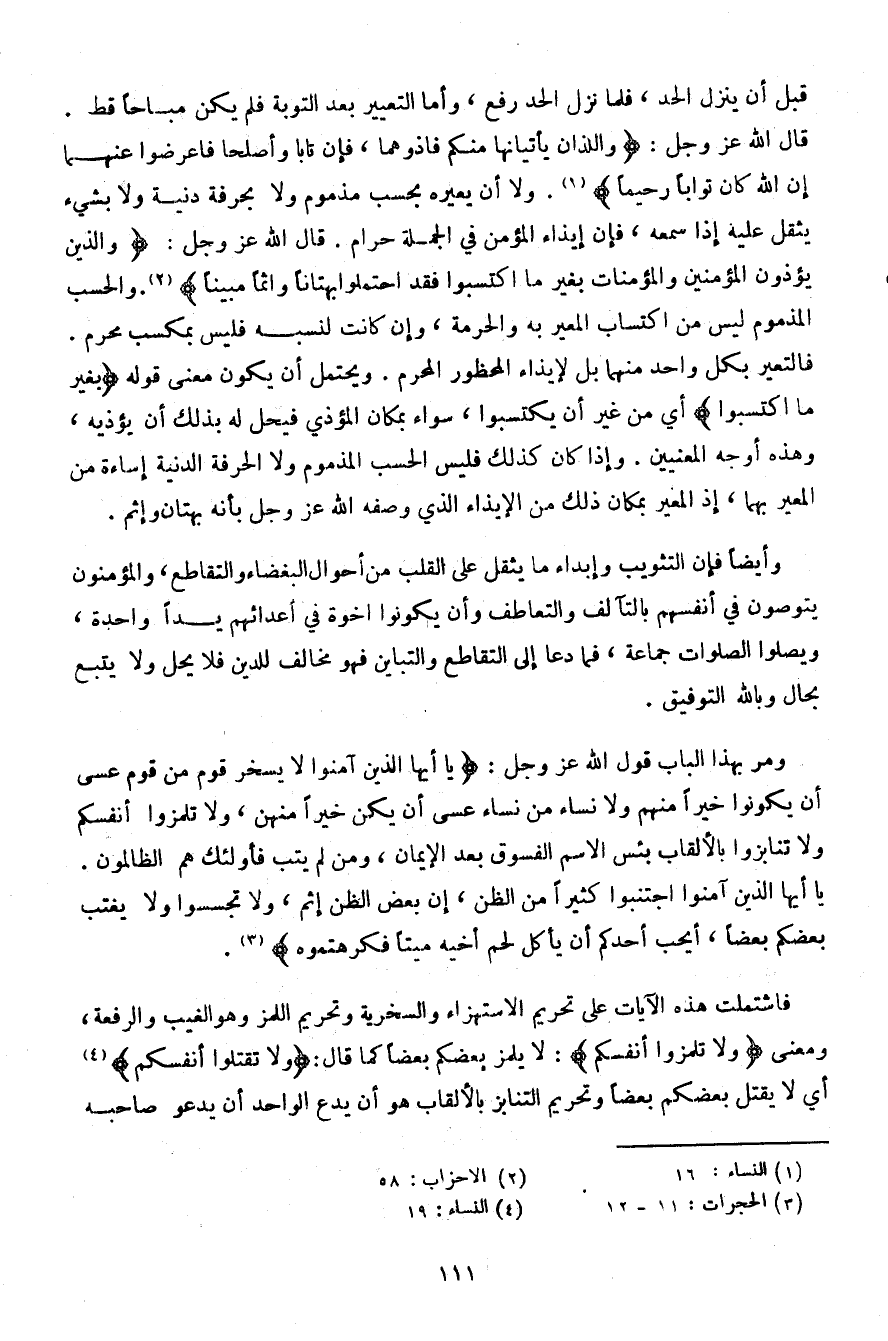 قبل أن ينزل الحد ، فلما نزل الحد رفع ، وأما التعيير بعد التوبة فلم يكن مبـاحاً قط .
قال الله عز وجل : ﴿ واللذان يأتيانها منكم فاذوهما ، فإن تابا وأصلحا فاعرضوا عنهـما
إن الله كان تواباً رحيماً ﴾ (١) . ولا أن يعيره بحسب مذموم ولا بحرفة دنيـة ولا بشيء
يثقل عليه إذا سمعه ، فإن إيذاء المؤمن في الجمـلة حرام . قال الله عز وجل : ﴿ والذين
يؤذون المؤمنين والمؤمنات بغير ما اكتسبوا فقد احتملوا بهتاناً واثماً مبيناً ﴾ (٢) . والحسب
المذموم ليس من اكتساب المعير به والحرمة ، وإن كانت لنسبـه فليس بمكسب محرم .
فالتعير بكل واحد منهما بل لإيذاء المحظور المحرم . ويحتمل أن يكون معنى قوله ﴿بغير
ما اكتسبوا ﴾ أي من غير أن يكتسبوا ، سواء بمكان المؤذي فيحل له بذلك أن يؤذيه ،
وهذه أوجه المعنيين . وإذا كان كذلك فليس الحسب المذموم ولا الحرفة الدنية إساءة من
المعير بهما ، إذ المعير بمكان ذلك من الإيذاء الذي وصفه الله عز وجل بأنه بهتان وإثم .
وأيضاً فإن التثويب وإبداء ما يثقل على القلب من أحوال البغضاء والتقاطع ، والمؤمنون
يتوصون في أنفسهم بالتآلف والتعاطف وأن يكونوا اخوة في أعدائهم يـداً واحدة ،
ويصلوا الصلوات جماعة ، فما دعا إلى التقاطع والتباين فهو مخالف للدين فلا يحل ولا يتبع
بحال وبالله التوفيق .
ومر بهذا الباب قول الله عز وجل : ﴿ يا أيها الذين آمنوا لا يسخر قوم من قوم عسى
أن يكونوا خيراً منهم ولا نساء من نساء عسى أن يكن خيراً منهن ، ولا تلمزوا أنفسكم
ولا تنابزوا بالألقاب بئس الاسم الفسوق بعد الإيمان ، ومن لم يتب فأولئك هم الظالمون .
يا أيها الذين آمنوا اجتنبوا كثيراً من الظن ، إن بعض الظن إثم ، ولا تجسسوا ولا يغتب
بعضكم بعضاً ، أيحب أحدكم أن يأكل لحم أخيه ميتاً فكرهتموه ﴾ (٣) .
فاشتملت هذه الآيات على تحريم الاستهزاء والسخرية وتحريم اللمز وهو الغيب والرفعة ،
ومعنى ﴿ ولا تلمزوا أنفسكم ﴾ : لا يلمز بعضكم بعضاً كما قال : ﴿ولا تقتلوا أنفسكم ﴾ (٤)
أي لا يقتل بعضكم بعضاً وتحريم التنابز بالألقاب هو أن يدع الواحد أن يدعو صاحبـه
(١) النساء : ١٦ (٢) الاحزاب : ٥٨
(٣) الحجرات : ١١ - ١٢ (٤) النساء : ١٩
١١١